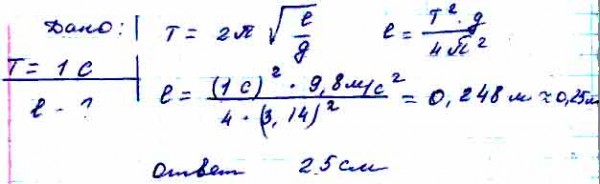 Дано: T = 2π √(l/g) l = T² · g / 4π²
T = 1 с
l - ? l = (1 с)² · 9,8 м/с² / 4 · (3,14)² = 0,248 м ≈ 0,25 м
ответ 25 см